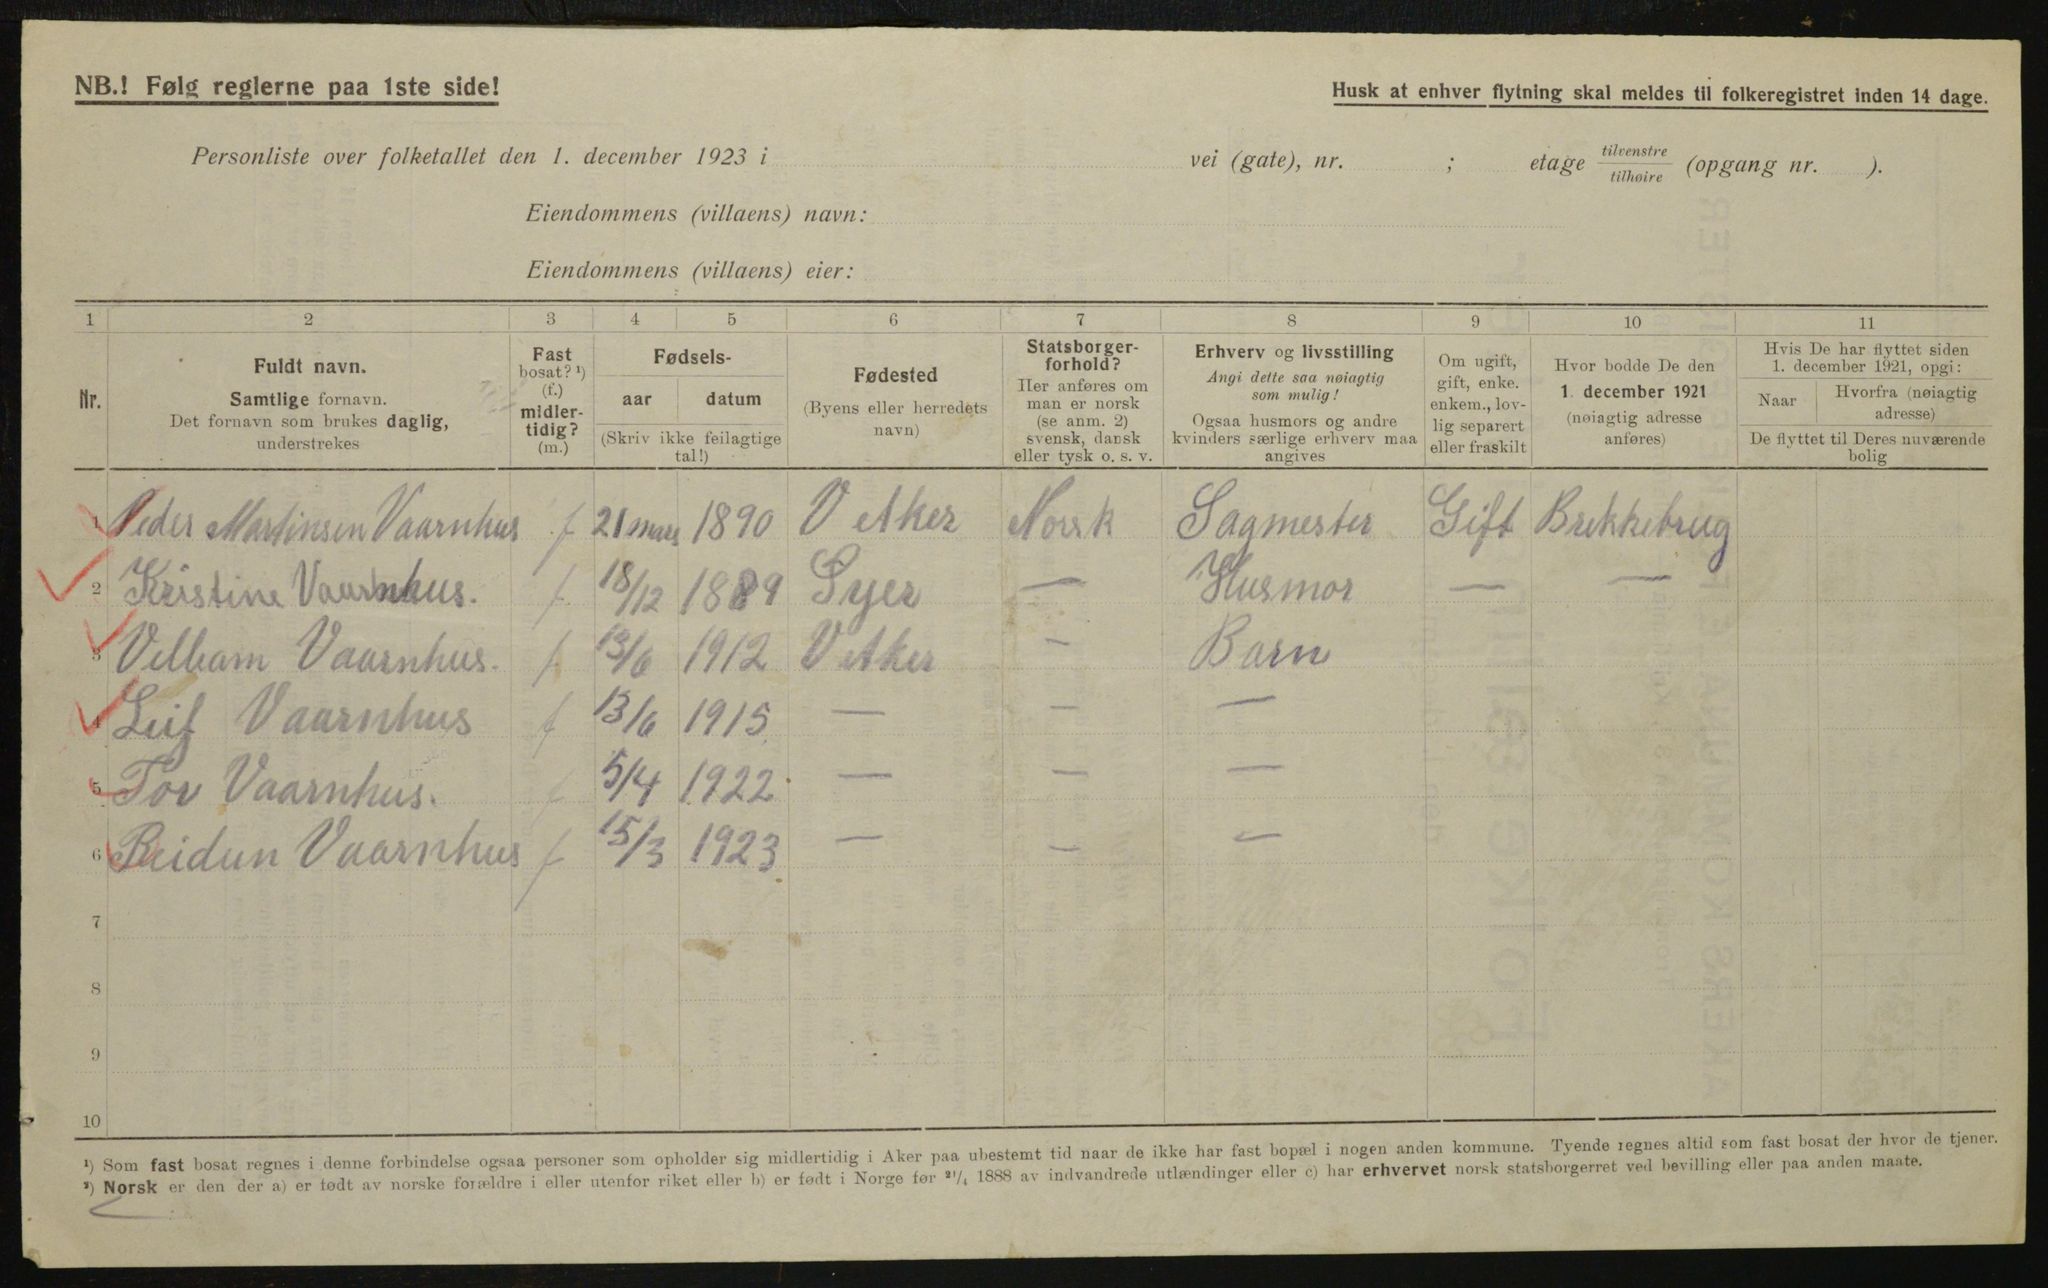 NB.! Følg reglerne paa 1ste side!
Husk at enhver flytning skal meldes til folkeregistret inden 14 dage.
Personliste over folketallet den 1. december 1923 i vei (gate), nr. ; etage tilvenstre / tilhøire (opgang nr. ).
Eiendommens (villaens) navn:
Eiendommens (villaens) eier:
1 2 3 4 5 6 7 8 9 10 11
Nr.
Fuldt navn.
Samtlige fornavn.
Det fornavn som brukes daglig,
understrekes
Fast
bosat? ¹)
(f.)
midler-
tidig?
(m.)
Fødsels-
aar datum
(Skriv ikke feilagtige
tal!)
Fødested
(Byens eller herredets
navn)
Statsborger-
forhold?
Her anføres om
man er norsk
(se anm. 2)
svensk, dansk
eller tysk o. s. v.
Erhverv og livsstilling
Angi dette saa nøiagtig
som mulig!
Ogsaa husmors og andre
kvinders særlige erhverv maa
angives
Om ugift,
gift, enke.
enkem., lov-
lig separert
eller fraskilt
Hvor bodde De den
1. december 1921
(nøiagtig adresse
anføres)
Hvis De har flyttet siden
1. december 1921, opgi:
Naar
Hvorfra (nøiagtig
adresse)
De flyttet til Deres nuværende
bolig
1 Peder Martinsen Vaarnhus f 21 mars 1890 V Aker Norsk Sagmester Gift Brekkebrug
2 Kristine Vaarnhus. f. 18/12 1889 Øyer — Husmor — —
3 Vilham Vaarnhus. f 13/6 1912 V Aker — Barn
4 Leif Vaarnhus f 13/6 1915 — — —
5 Tor Vaarnhus. f 5/4 1922 — — —
6 Reidun Vaarnhus f 15/3 1923 — — —
7
8
9
10
¹) Som fast bosat regnes i denne forbindelse ogsaa personer som opholder sig midlertidig i Aker paa ubestemt tid naar de ikke har fast bopæl i nogen anden kommune. Tyende regnes altid som fast bosat der hvor de tjener.
²) Norsk er den der a) er født av norske forældre i eller utenfor riket eller b) er født i Norge før ²¹/₄ 1888 av indvandrede utlændinger eller c) har erhvervet norsk statsborgerret ved bevilling eller paa anden maate.